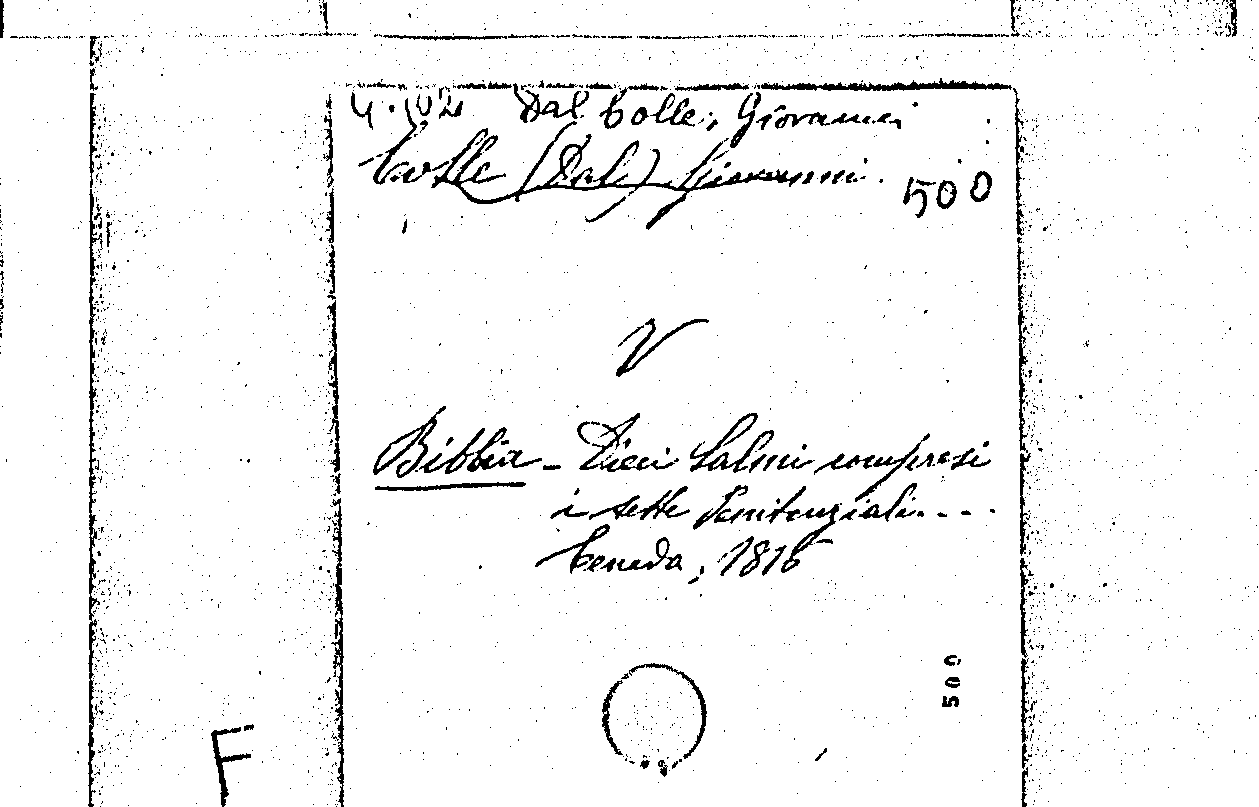 4.102 Dal Colle, Giovanni
Colle (Dal) Giovanni.
500
V
Bibbia - Dieci Salmi compresi
i sette Penitenziali....
Ceneda, 1816
500
F